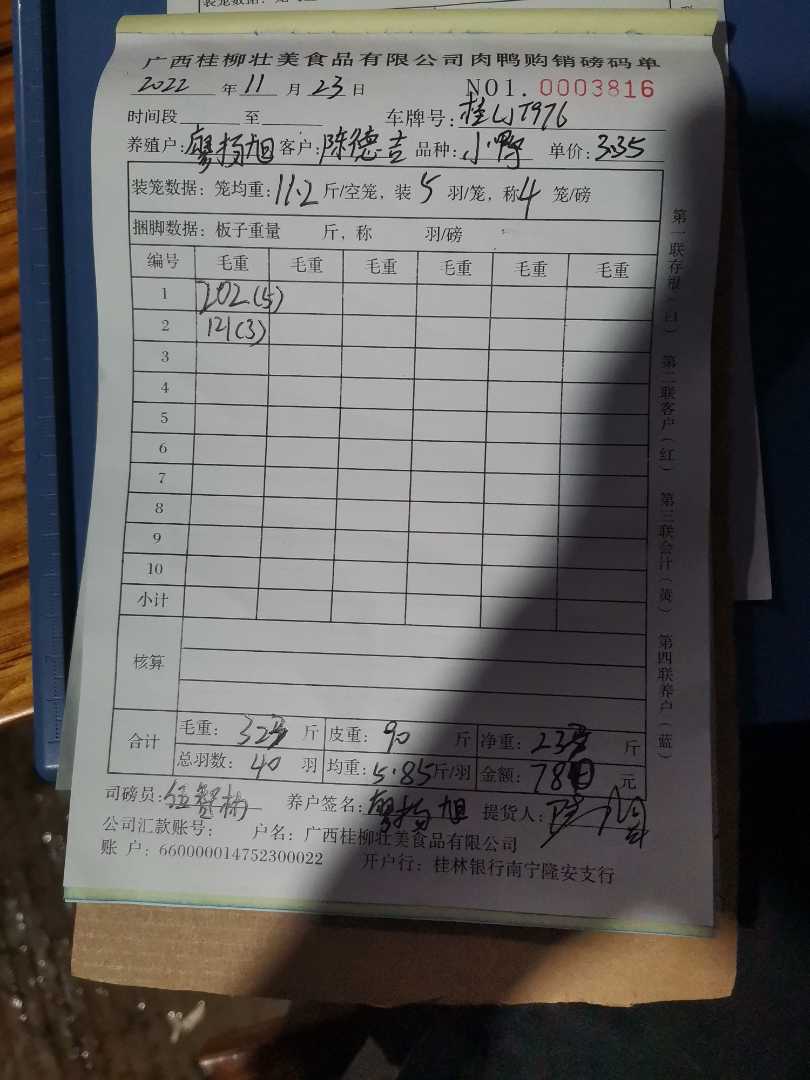 广西桂柳壮美食品有限公司肉鸭购销磅码单
2022年11月23日 NO1.0003816
时间段 至 车牌号:桂
养殖户:廖扬旭 客户:陈德吉 品种:小鸭 单价:3.35
装笼数据:笼均重:11.2斤/空笼,装5羽/笼,称4笼/磅
捆脚数据:板子重量 斤,称 羽/磅
编号 毛重 毛重 毛重 毛重 毛重 毛重
1 202(5)
2 121(3)
3
4
5
6
7
8
9
10
小计
核算
合计
毛重: 斤 皮重:90斤 净重: 斤
总羽数:40羽 均重:5.85斤/羽 金额: 元
司磅员: 养户签名:廖扬旭 提货人:
公司汇款账号: 户名:广西桂柳壮美食品有限公司
账 户:660000014752300022 开户行:桂林银行南宁隆安支行
第一联存根(白) 第二联客户(红) 第三联会计(黄) 第四联养户(蓝)